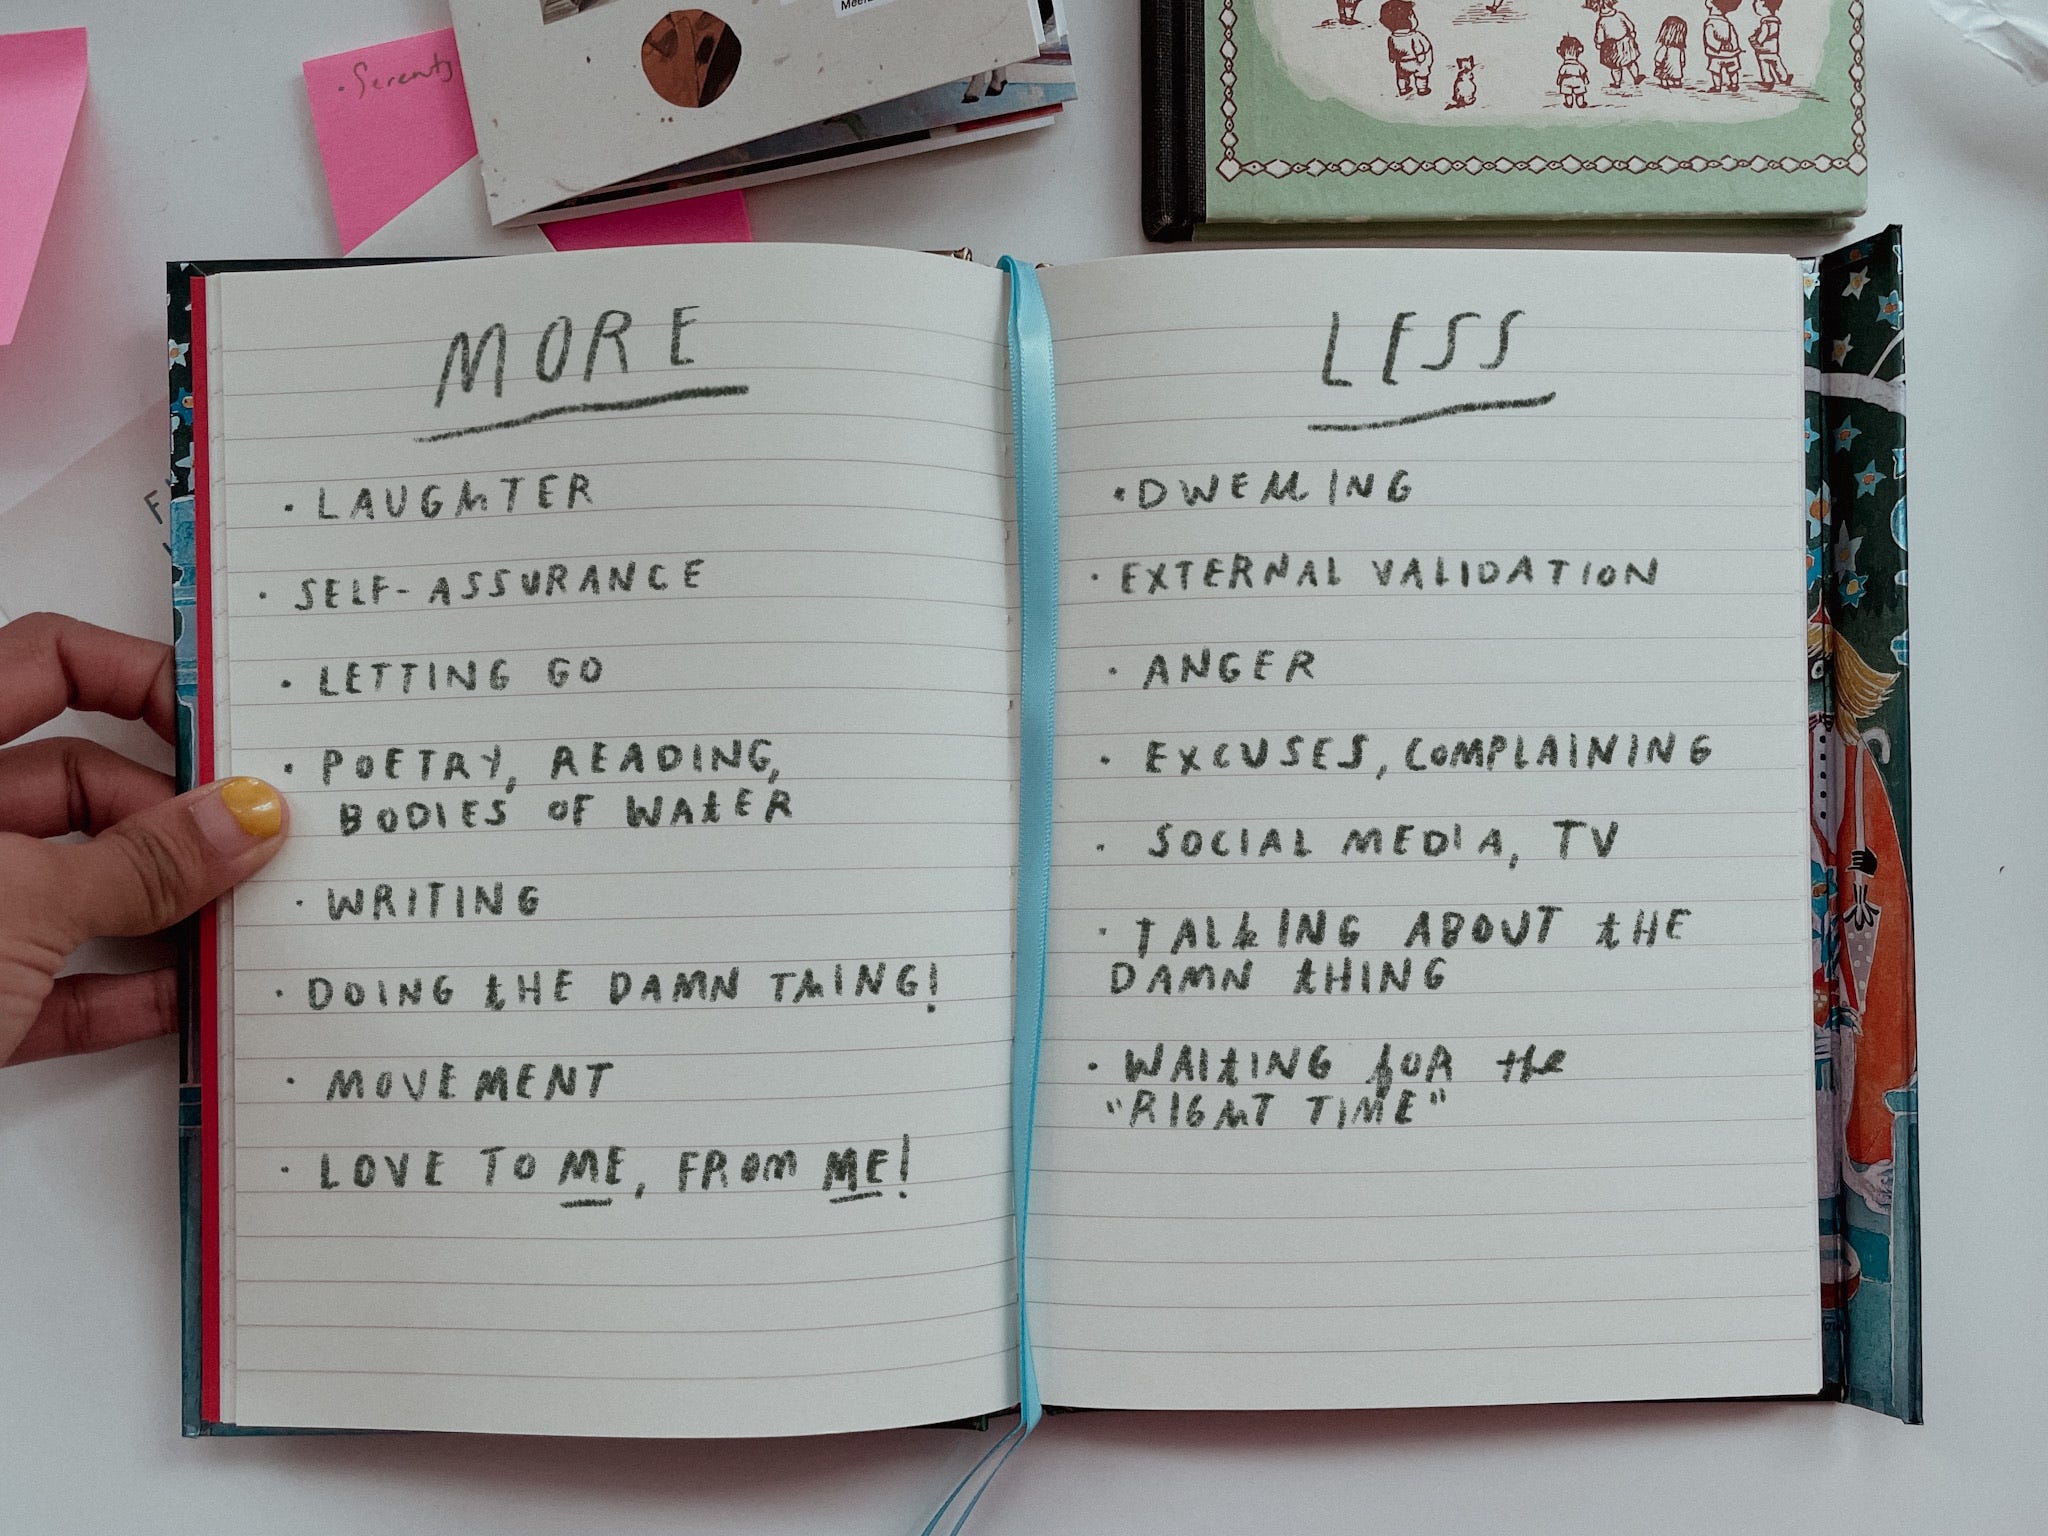 • Serenity
MORE
• LAUGHTER
• SELF-ASSURANCE
• LETTING GO
• POETRY, READING,
BODIES OF WATER
• WRITING
• DOING THE DAMN THING!
• MOVEMENT
• LOVE TO ME, FROM ME!
LESS
• DWELLING
• EXTERNAL VALIDATION
• ANGER
• EXCUSES, COMPLAINING
• SOCIAL MEDIA, TV
• TALKING ABOUT THE
DAMN THING
• WAITING FOR the
"RIGHT TIME"